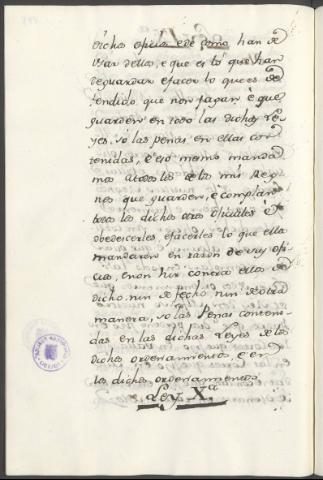 dichos oficios, e de como han de
usar dellos, e que es lo que han
de guardar e facer lo que es de
fendido que non fagan è que
guarden en todo las dichas le
yes, so las penas en ellas con
tenidas, è eso mismo manda
mos a todos los de los mis Reg
nos que guarden, è complan
todos los dichos otros oficiales è
obedescerles e facerles lo que ellos
mandaren en razon de suy ofi
cios, e non hir contra ellos de
dicho nin de fecho, nin de otra
manera, so las Penas conteni
das en las dichas Leyes de los
dichos ordenamientos, è en
los dichos ordenamientos.
Ley X.a